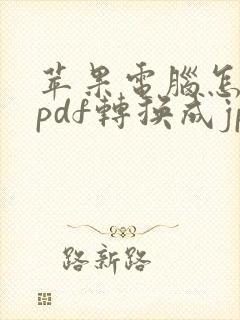 苹果電腦怎
pdf轉換成jp
路新路